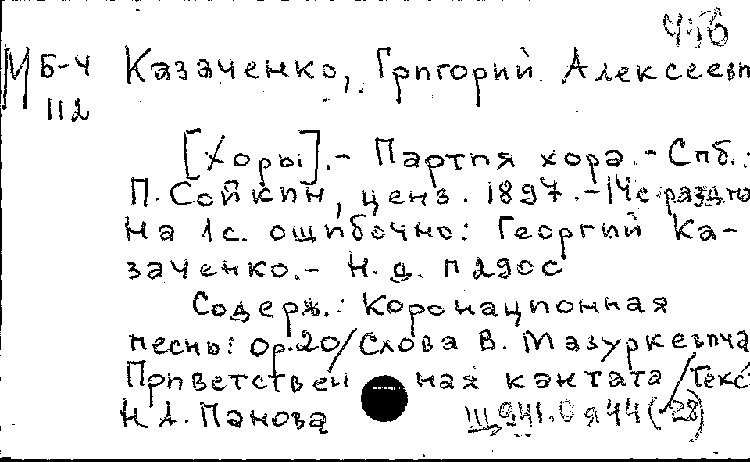 М Б-4 Казаченко, Григорий Алексеевич
112
[Хоры].- Партия хора.- Спб.:
П. Сойкин, ценз. 1897.-
На 1с. ошибочно: Георгий Ка-
заченко.- Н.д. П290С
Содерж.: Коронационная
песнь: Ор.20/Слова В. Мазуркевича
Приветствен ная кантата/Текс
Н А. Панова Щ941.0я44(-28)